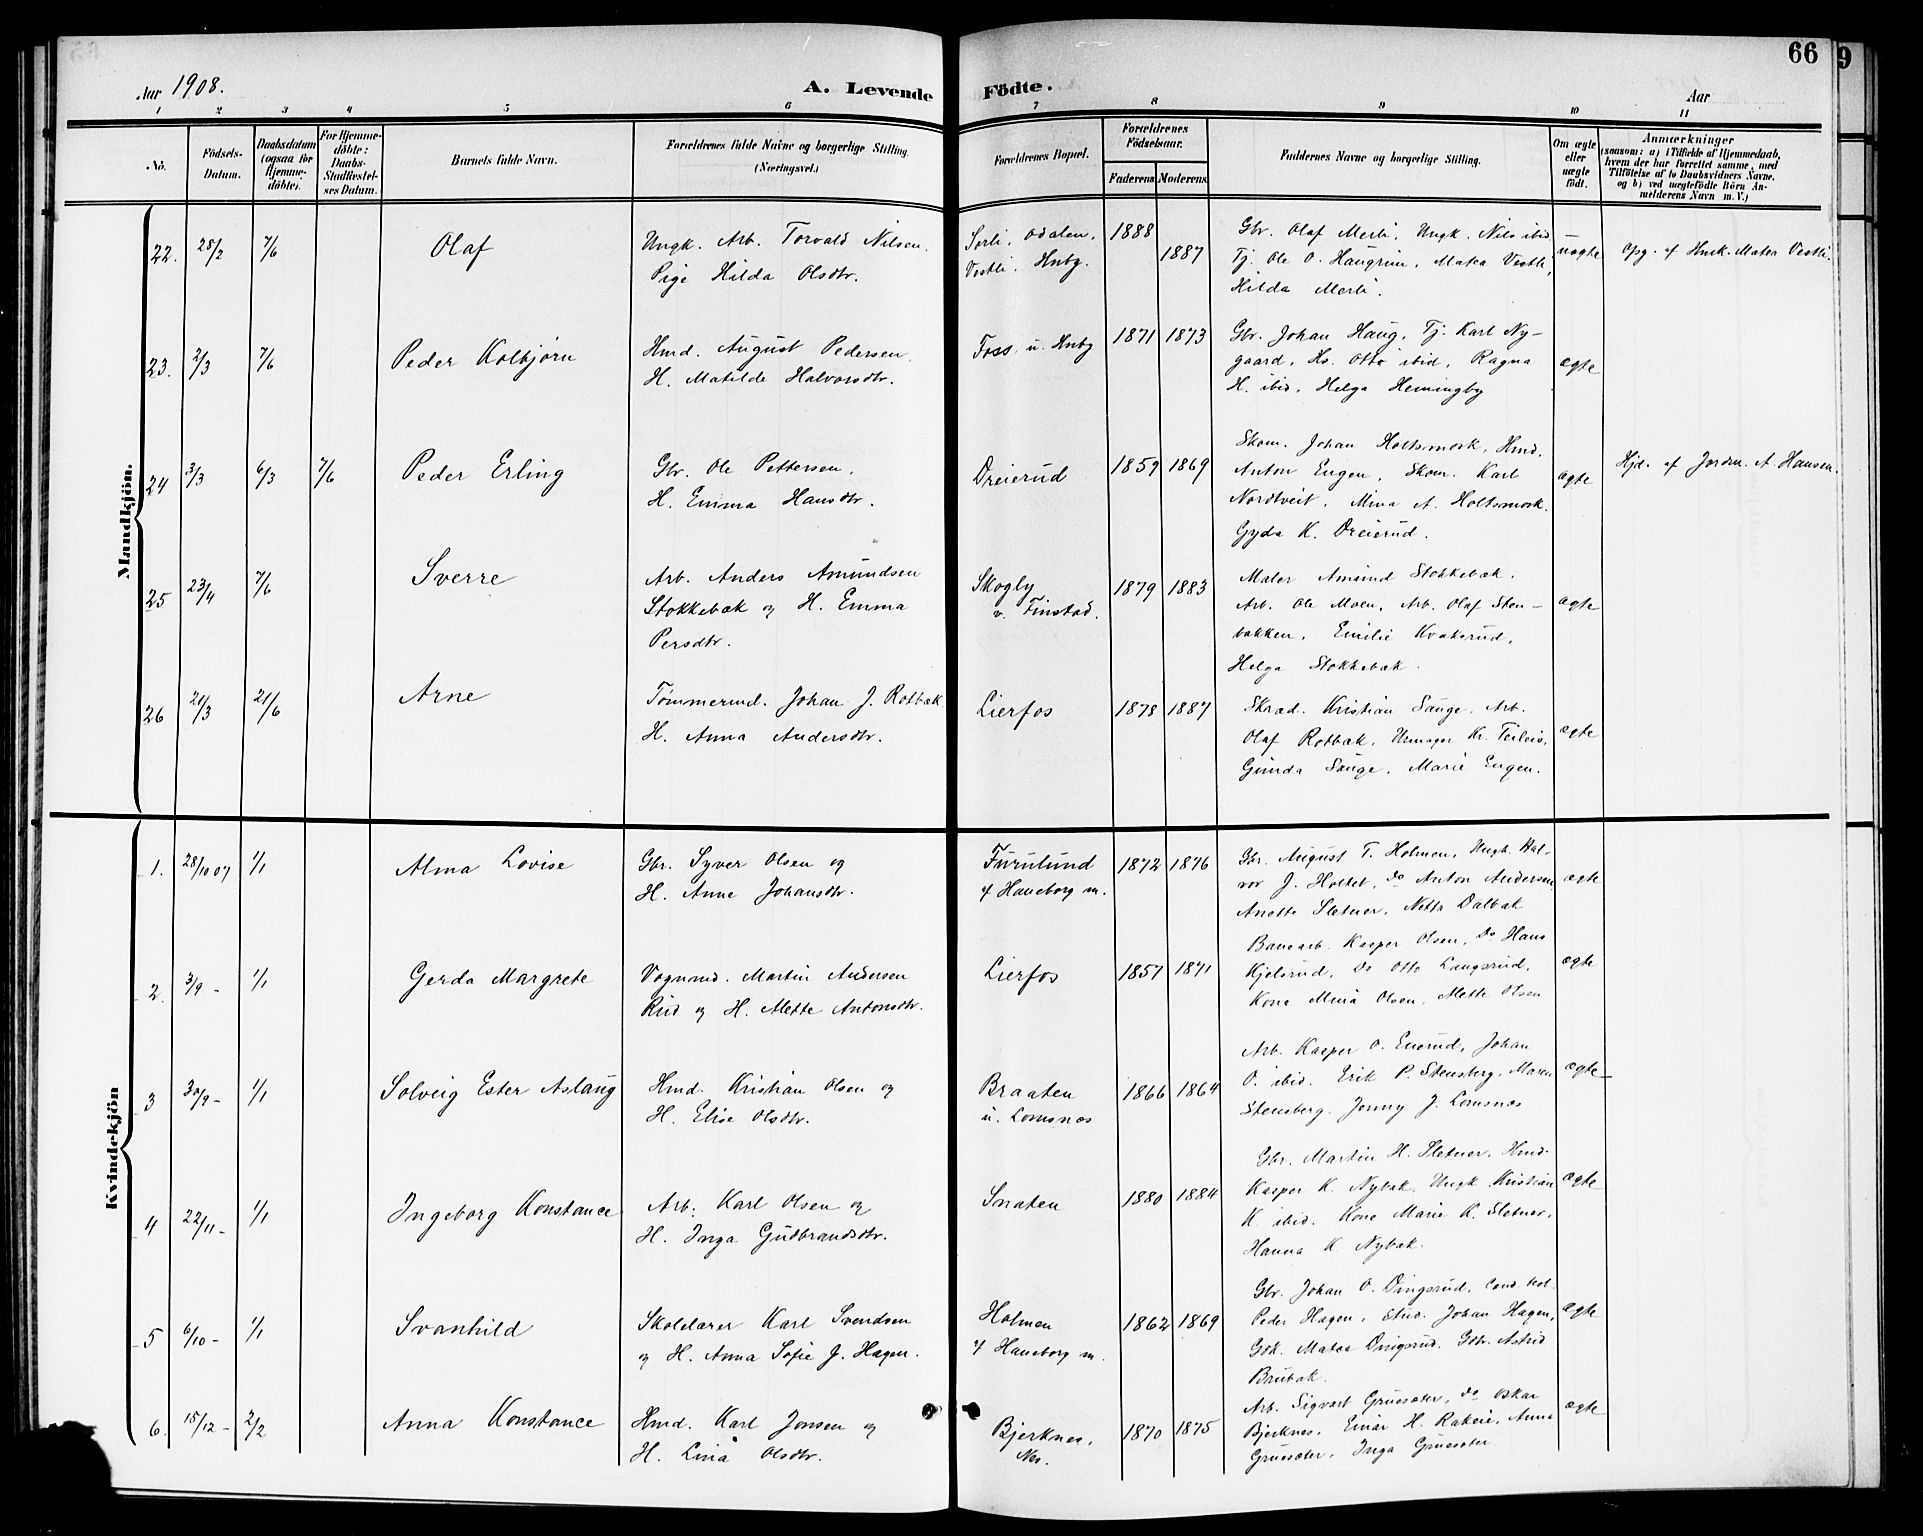 66
9
Aar 1908.
A. Levende Födte.
Aar
1 2 3 4 5 6 7 8 9 10 11
No.
Födsels-
Datum.
Daabsdatum
(ogsaa for
Hjemme-
döbte).
For Hjemme-
döbte:
Daabs-
Stadfæstel-
ses Datum.
Barnets fulde Navn.
Forældrenes fulde Navne og borgerlige Stilling.
(Næringsvei.)
Forældrenes Bopæl.
Forældrenes
Födselsaar.
Faderens Moderens
Faddernes Navne og borgerlige Stilling.
Om ægte
eller
uægte
födt.
Anmærkninger
(saasom: a) i Tilfælde af Hjemmedaab,
hvem der har forrettet samme, med
Tilföielse af to Daabsvidners Navne,
og b) ved uægtefödte Börn An-
melderens Navn m. V.)
Mandkjön.
22. 28/2 7/6 Olaf
Ungk. Arb. Torvald Nilsen.
Pige Hilda Olsdtr.
Sørli, Odalen,
Vestli, Hnbg.
1888 1887
Gbr. Olaf Merli, Ungk. Nils ibid
Tj. Ole O. Haugrim, Matea Vestli,
Hilda Merli.
uægte
Opg. af Husk. Matea Vestli.
23. 2/3 7/6 Peder Kolbjørn
Hmd. August Pedersen,
H. Matilde Halvorsdtr.
Foss u. Hnbg
1871 1873
Gbr. Johan Haug, Tj. Karl Ny-
gaard, Hs. Otto ibid, Ragna
H. ibid, Helga Hemingby
ægte
24 3/3 6/3 7/6 Peder Erling
Gbr. Ole Pettersen,
H. Emma Hansdtr.
Dreierud
1859 1869
Skom. Johan Holtsmork, Hmd.
Anton Engen, Skom. Karl
Nordtveit, Mina A. Holtsmork.
Gyda K. Dreierud.
ægte
Hjd. af Jordm. A. Hansen.
25 23/4 7/6 Sverre
Arb. Anders Amundsen
Stokkebæk og H. Emma
Persdtr.
Skogly
v. Finstad.
1879 1883
Maler Amund Stokkebæk.
Arb. Ole Moen, Arb. Olaf Sten-
bakken, Emilie Kvakerud,
Helga Stokkebæk.
ægte
26 21/3 21/6 Arne
Tømmermd. Johan J. Rotbæk
H. Anna Andersdtr.
Lierfos
1878 1887
Skræd. Kristian Sauge, Arb.
Olaf Rotbæk, Urmager Kr. Teileis,
Gunda Sauge, Marie Engen.
ægte
Kvindekjön
1. 28/10 07 1/1 Alma Lovise
Gbr. Syver Olsen og
H. Anne Johansdtr.
Furulund
af Haneborg m.
1872 1876
Gbr. August T. Holmen, Ungk. Hal-
vor J. Holtet, do Anton Andersen
Anette Sletner, Netta Dalbæk
ægte
2. 3/9 - 1/1 Gerda Margrete
Vognmd. Martin Andersen
Rud og H. Mette Antonsdtr.
Lierfos
1857 1871
Banearb. Kasper Olsen, Do Hans
Kjelsrud, Do Otto Langsrud,
Kona Mina Olsen, Mette Olsen
ægte
3 30/9 - 1/1 Solveig Ester Aslaug
Hmd. Kristian Olsen og
H. Elise Olsdtr.
Braaten
u. Lomsnes
1866 1864
Arb. Kasper O. Euerud, Johan
O. ibid. Erik P. Stensberg, Maren
Stensberg. Jenny J. Lomsnæs
ægte
4 22/11 - 1/1 Ingeborg Konstance
Arb. Karl Olsen og
H. Inga Gudbrandsdtr.
Snaten
1880 1884
Gbr. Martin H. Sletner, Hmd.
Kasper K. Nybæk, Ungk Kristian
K. ibid. Kone Marie K. Sletner,
Hanna K Nybæk.
ægte
5 6/10 - 1/1 Svanhild
Skolelærer Karl Svendsen
og H. Anna Sofie J. Hagen.
Holmen
af Haneborg m.
1862 1869
Gbr. Johan O. Dingsrud, Cand.
Peder Hagen, Stud. Johan Hagen,
Gbk. Matea Dingsrud, Gdtr. Astrid
Brubæk.
ægte
6. 15/12 - 2/2 Anna Konstance
Hmd. Karl Jonsen og
H. Lina Olsdtr.
Bjerknes,
Nes.
1870 1875
Arb. Sigvart Gruesæter, do Oskar
Bjerknes, Einar H. Rakeie, Anna
Gruesæter, Inga Gruesæter
ægte